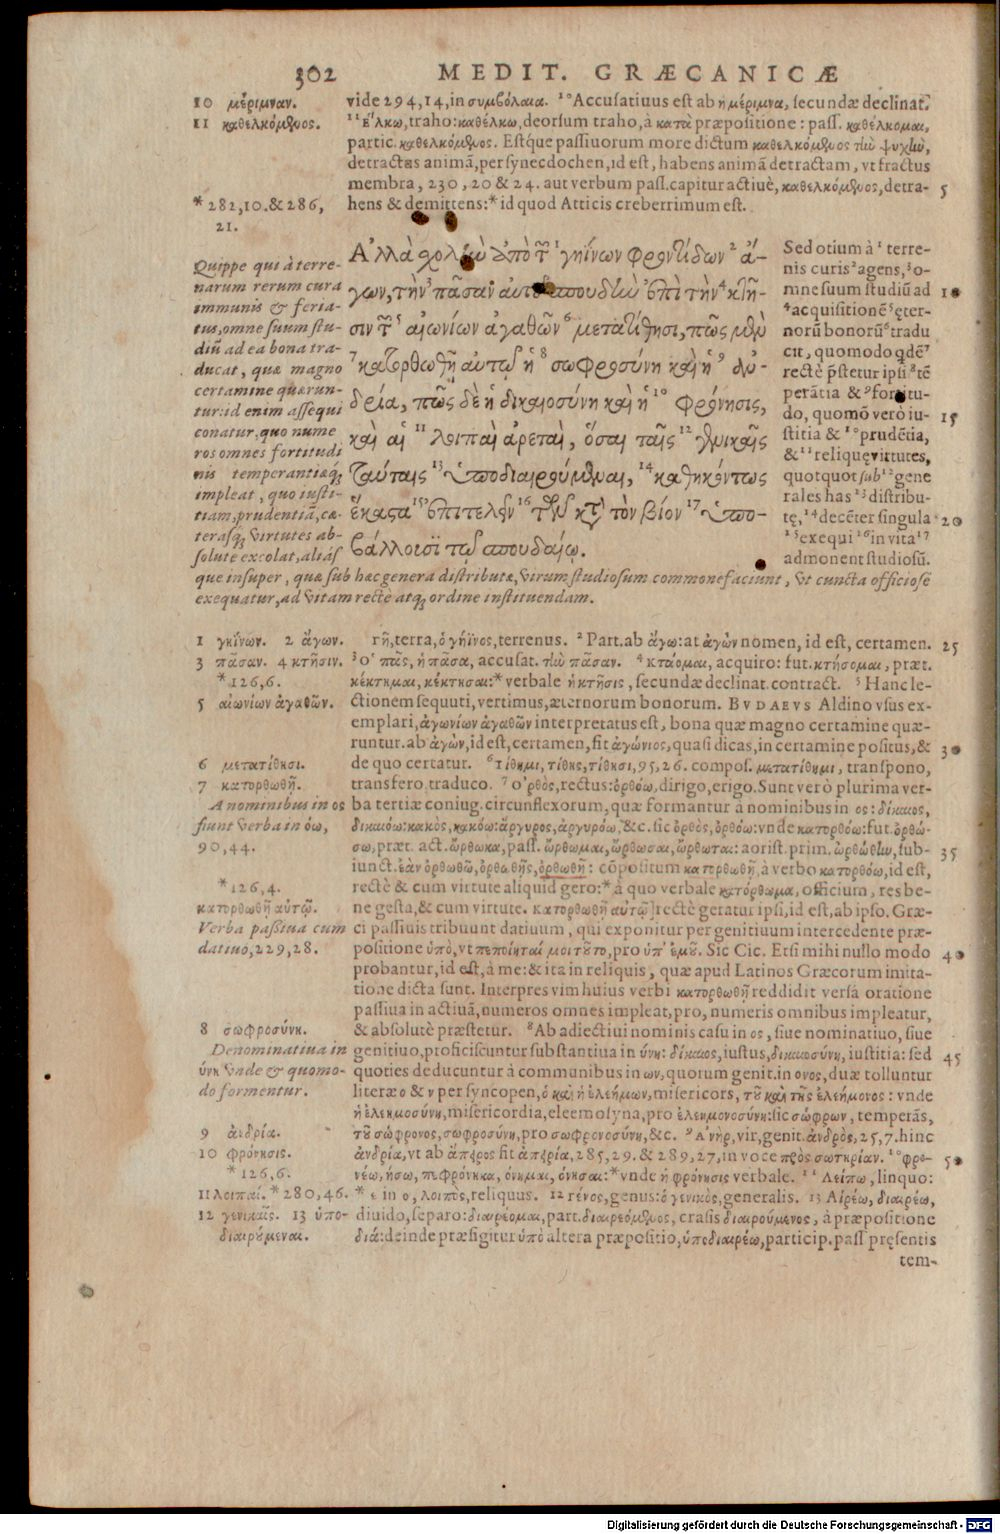 302 MEDIT. GRÆCANICÆ
10 μέριμναν.
11 καθελκόμενος.
* 282,10.& 286,
21.
vide 294,14,in συμβόλαια. ¹⁰Accusatiuus est ab ἡ μέριμνα, secundæ declinat.
¹¹ἕλκω,traho:καθέλκω,deorsum traho,à κατὰ præpositione: pass. καθέλκομαι,
partic. καθελκόμενος. Estq́ue passiuorum more dictum καθελκόμενος τὴν ψυχὴν,
detractus animā,per synecdochen,id est, habens animā detractam, vt fractus
membra, 230, 20 & 24. aut verbum pass.capitur actiuè, καθελκόμενος, detra- 5
hens & demittens:* id quod Atticis creberrimum est.
Quippe qui à terre-
narum rerum cura
immunis & feria-
tus,omne suum stu-
diū ad ea bona tra-
ducat, quæ magno
certamine quærun-
tur:id enim assequi
conatur,quo nume
ros omnes fortitudi
nis temperantiæq́;
impleat, quo iusti-
tiam,prudentiā,cæ-
terasq́; virtutes ab-
solute excolat,aliás
Ἀλλὰ σχολὴν ἀπὸ τῶν ¹ γηΐνων φροντίδων ² ἄ-
γων,τὴν ³ πᾶσαν αὐτοῦ σπουδὴν ἐπὶ τὴν ⁴ κτῆ-
σιν τῶν ⁵ αἰωνίων ἀγαθῶν ⁶ μετατίθησι,πῶς μὲν
⁷ κατορθωθῇ αὐτῷ ἡ ⁸ σωφροσύνη καὶ ἡ ⁹ ἀν-
δρία, πῶς δὲ ἡ δικαιοσύνη καὶ ἡ ¹⁰ φρόνησις,
καὶ αἱ ¹¹ λοιπαὶ ἀρεταὶ, ὅσαι ταῖς ¹² γενικαῖς
ταύταις ¹³ ὑποδιαιρούμεναι, ¹⁴ καθηκόντως
ἕκαστα ¹⁵ ἐπιτελεῖν ¹⁶ τῶν κατὰ τὸν βίον ¹⁷ ὑπο-
βάλλουσι τῷ σπουδαίῳ.
Sed otium à ¹ terre-
nis curis ² agens, ³ o-
mne suum studiū ad 10
⁴ acquisitionē ⁵ ęter-
norū bonorū ⁶ tradu
cit, quomodo qdē ⁷
rectè p̄stetur ipsi ⁸ tē
perātia & ⁹ fortitu-
do, quomō verò iu- 15
stitia & ¹⁰ prudētia,
& ¹¹ reliquę virtutes,
quotquot sub ¹² gene
rales has ¹³ distribu-
tę, ¹⁴ decēter singula 20
¹⁵ exequi ¹⁶ in vita ¹⁷
admonent studiosū.
que insuper, quæ sub hæc genera distributæ,virum studiosum commonefaciunt, vt cuncta officiosè
exequatur,ad vitam rectè atq́; ordine instituendam.
1 γηΐνων. 2 ἄγων.
3 πᾶσαν. 4 κτῆσιν.
* 126,6.
5 αἰωνίων ἀγαθῶν.
6 μετατίθησι.
7 κατορθωθῇ.
A nominibus in ος
fiunt verba in όω,
90,44.
* 126,4.
κατορθωθῇ αὐτῷ.
Verba passiua cum
datiuo,229,28.
8 σωφροσύνη.
Denominatiua in
ύνη vnde & quomo-
do formentur.
9 ἀνδρία.
10 φρόνησις.
* 126,6.
11 λοιπαί. * 280,46.
12 γενικαῖς. 13 ὑπο-
διαιρούμεναι.
γῆ,terra,ὁ γήϊνος,terrenus. ² Part.ab ἄγω:at ἀγὼν nomen, id est, certamen. 25
³ὁ πᾶς, ἡ πᾶσα, accusat. τὴν πᾶσαν. ⁴ κτάομαι, acquiro: fut. κτήσομαι, præt.
κέκτημαι, κέκτησαι:* verbale ἡ κτῆσις, secundæ declinat.contract. ⁵ Hanc le-
ctionem sequuti, vertimus,æternorum bonorum. BVDAEVS Aldino vsus ex-
emplari, ἀγωνίων ἀγαθῶν interpretatus est, bona quæ magno certamine quæ-
runtur.ab ἀγὼν,id est,certamen,fit ἀγώνιος,quasi dicas,in certamine positus,& 30
de quo certatur. ⁶τίθημι, τίθης,τίθησι,95,26. compos. μετατίθημι, transpono,
transfero,traduco. ⁷ ὀρθὸς,rectus:ὀρθόω,dirigo,erigo. Sunt verò plurima ver-
ba tertiæ coniug.circunflexorum,quæ formantur à nominibus in ος: δίκαιος,
δικαιόω:κακὸς,κακόω:ἄργυρος,ἀργυρόω,&c. sic ὀρθὸς,ὀρθόω:vnde κατορθόω:fut.ὀρθώ-
σω,præt. act. ὤρθωκα,pass. ὤρθωμαι,ὤρθωσαι,ὤρθωται: aorist.prim. ὠρθώθην, sub- 35
iunct.ἐὰν ὀρθωθῶ,ὀρθωθῇς,ὀρθωθῇ: cōpositum κατορθωθῇ,à verbo κατορθόω,id est,
rectè & cum virtute aliquid gero:* à quo verbale κατόρθωμα, officium, res be-
ne gesta,& cum virtute. κατορθωθῇ αὐτῷ]rectè geratur ipsi,id est,ab ipso. Græ-
ci passiuis tribuunt datiuum, qui exponitur per genitiuum intercedente præ-
positione ὑπὸ,vt πεποίηταί μοι τοῦτο,pro ὑπ' ἐμοῦ. Sic Cic. Etsi mihi nullo modo 40
probantur,id est,à me:& ita in reliquis, quæ apud Latinos Græcorum imita-
tione dicta sunt. Interpres vim huius verbi κατορθωθῇ reddidit versâ oratione
passiua in actiuā,numeros omnes impleat,pro, numeris omnibus impleatur,
& absolutè præstetur. ⁸Ab adiectiui nominis casu in ος, siue nominatiuo, siue
genitiuo,proficiscuntur substantiua in ύνη: δίκαιος,iustus,δικαιοσύνη, iustitia: sed 45
quoties deducuntur à communibus in ων,quorum genit.in ονος,duæ tolluntur
literæ ο & ν per syncopen, ὁ καὶ ἡ ἐλεήμων,misericors, τοῦ καὶ τῆς ἐλεήμονος: vnde
ἡ ἐλεημοσύνη,misericordia,eleemosyna,pro ἐλεημονοσύνη:sic σώφρων, temperās,
τοῦ σώφρονος,σωφροσύνη,pro σωφρονοσύνη,&c. ⁹ ἀνὴρ,vir,genit.ἀνδρὸς,25,7.hinc
ἀνδρία,vt ab ἄπειρος fit ἀπειρία,285,29.& 289,27,in voce πρὸς σωτηρίαν. ¹⁰φρο- 50
νέω,ήσω, πεφρόνηκα, όνημαι, όνησαι:*vnde ἡ φρόνησις verbale. ¹¹ Λείπω, linquo:
* ε in ο, λοιπὸς,reliquus. 12 γένος,genus:ὁ γενικὸς,generalis. 13 Αἱρέω, διαιρέω,
diuido,separo:διαιρέομαι,part.διαιρεόμενος, crasis διαιρούμενος, à præpositione
διά:deinde præfigitur ὑπὸ altera præpositio,ὑποδιαιρέω,particip.pass præsentis
tem-
Digitalisierung gefördert durch die Deutsche Forschungsgemeinschaft - DFG